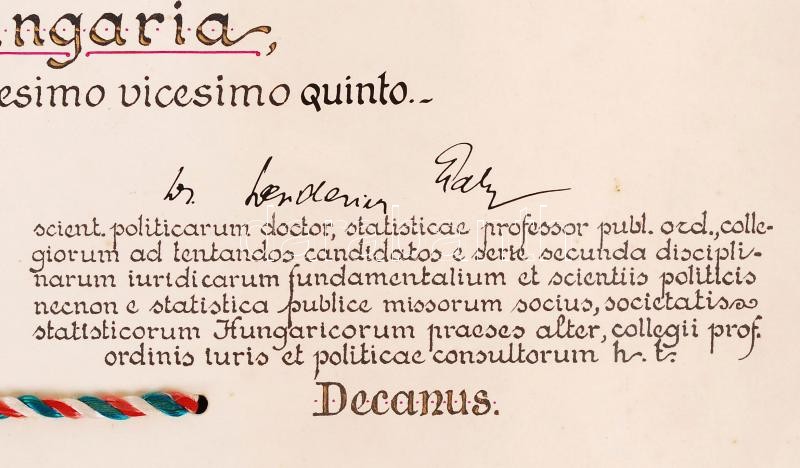 ngaria,
esimo vicesimo quinto.-
Dr. Laky
scient. politicarum doctor, statisticae professor publ. ord., colle-
giorum ad tentandos candidatos e serie secunda discipli-
narum iuridicarum fundamentalium et scientiis politicis
necnon e statistica publice missorum socius, societatis
statisticorum Hungaricorum praeses alter, collegii prof.
ordinis iuris et politicae consultorum h. t.
Decanus.